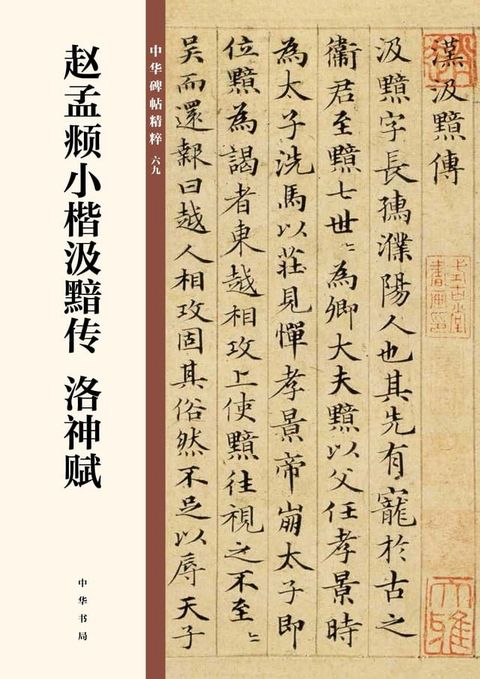 赵孟𫖯小楷汲黯传 洛神赋
中华书局
中华碑帖精粹 六九
漢汲黯傳
汲黯字長孺濮陽人也其先有寵於古之
衛君至黯七世〻為卿大夫黯以父任孝景時
為太子洗馬以莊見憚孝景帝崩太子即
位黯為謁者東越相攻上使黯往視之不至〻
吴而還報曰越人相攻固其俗然不足以辱天子
大雅